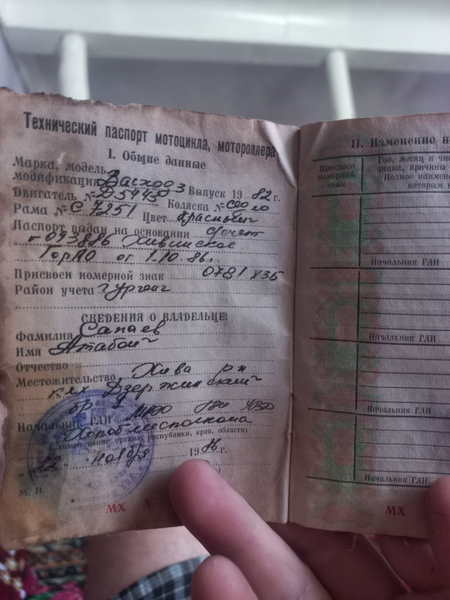 Технический паспорт мотоцикла, мотороллера
I. Общие данные
Марка, модель,
модификация Васход 3 Выпуск 1982 г.
Двигатель № Коляска №
Рама № С 7251 Цвет красный
Паспорт выдан на основании
093886 Хивинское
ГорПО от 1.10.86г
Присвоен номерной знак 0781 ХЗБ
Район учета гургонг
СВЕДЕНИЯ О ВЛАДЕЛЬЦЕ:
Фамилия Сапаев
Имя Атабой
Отчество
Местожительство Хива рн
клх Дзержинский
Начальник ГАИ МРО
облисполкома
(наименование органа, республики, края, области)
22 ноября 1986 г.
М. П.
МХ
II. Изменение
Присвоен
номерной
знак
Год, месяц и
знака, причина
Полное наимен
котором
Начальник ГАИ
Начальник ГАИ
Начальник ГАИ
Начальник ГАИ
МХ